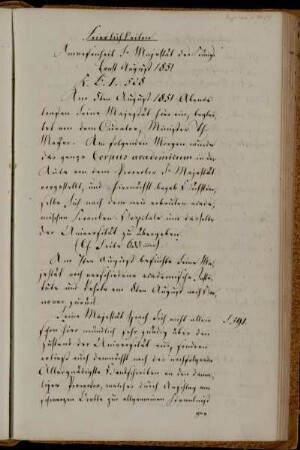 Feierlichkeiten
Anwesenheit Sr Majestät des Königs
Ernst August 1851
K. C. I. 588
Am 5ten August 1851 Abends
trafen Seine Majestät hier ein, beglei-
tet von dem Curator, Minister Th.
Meyer. Am folgenden Morgen wurde
das ganze Corpus academicum in der
Aula von dem Prorector Sr Majestät
vorgestellt, und hiernächst begab
selbe sich nach dem neu erbauten acade-
mischen Hospitale um dasselbe
der Universität zu übergeben
(Cf. Seite 633)
Am 7ten August besuchte Seine Ma-
jestät noch verschiedene academische Insti-
tute und kehrte am 8ten August nach Han-
nover zurück.
Seine Majestät sprach sich nicht allein
schon hier mündlich sehr gnädig über den
Zustand der Universität aus, sondern
erließ auch demnächst noch das nachfolgende
Allergnädigste Handschreiben an den dama-
ligen Prorector, welches durch Anschlag am
schwarzen Brette zur allgemeinen Kenntniß
S. 191.